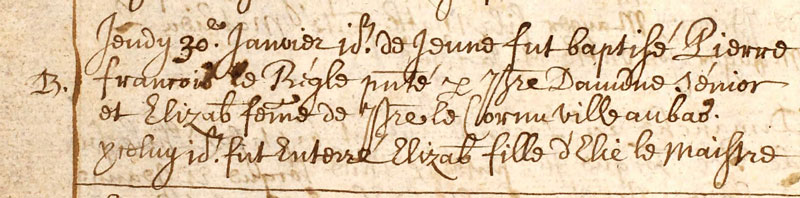 Jeudy 30e. Janvier id. de Jeune fut baptisé Pierre
B. francois le Régle pnté p Pre Daumône sénior
et Elizab feme de Pre le Cornu ville au bas.
yceluy id. fut Enterré Elizab fille d'Elie le Maistre